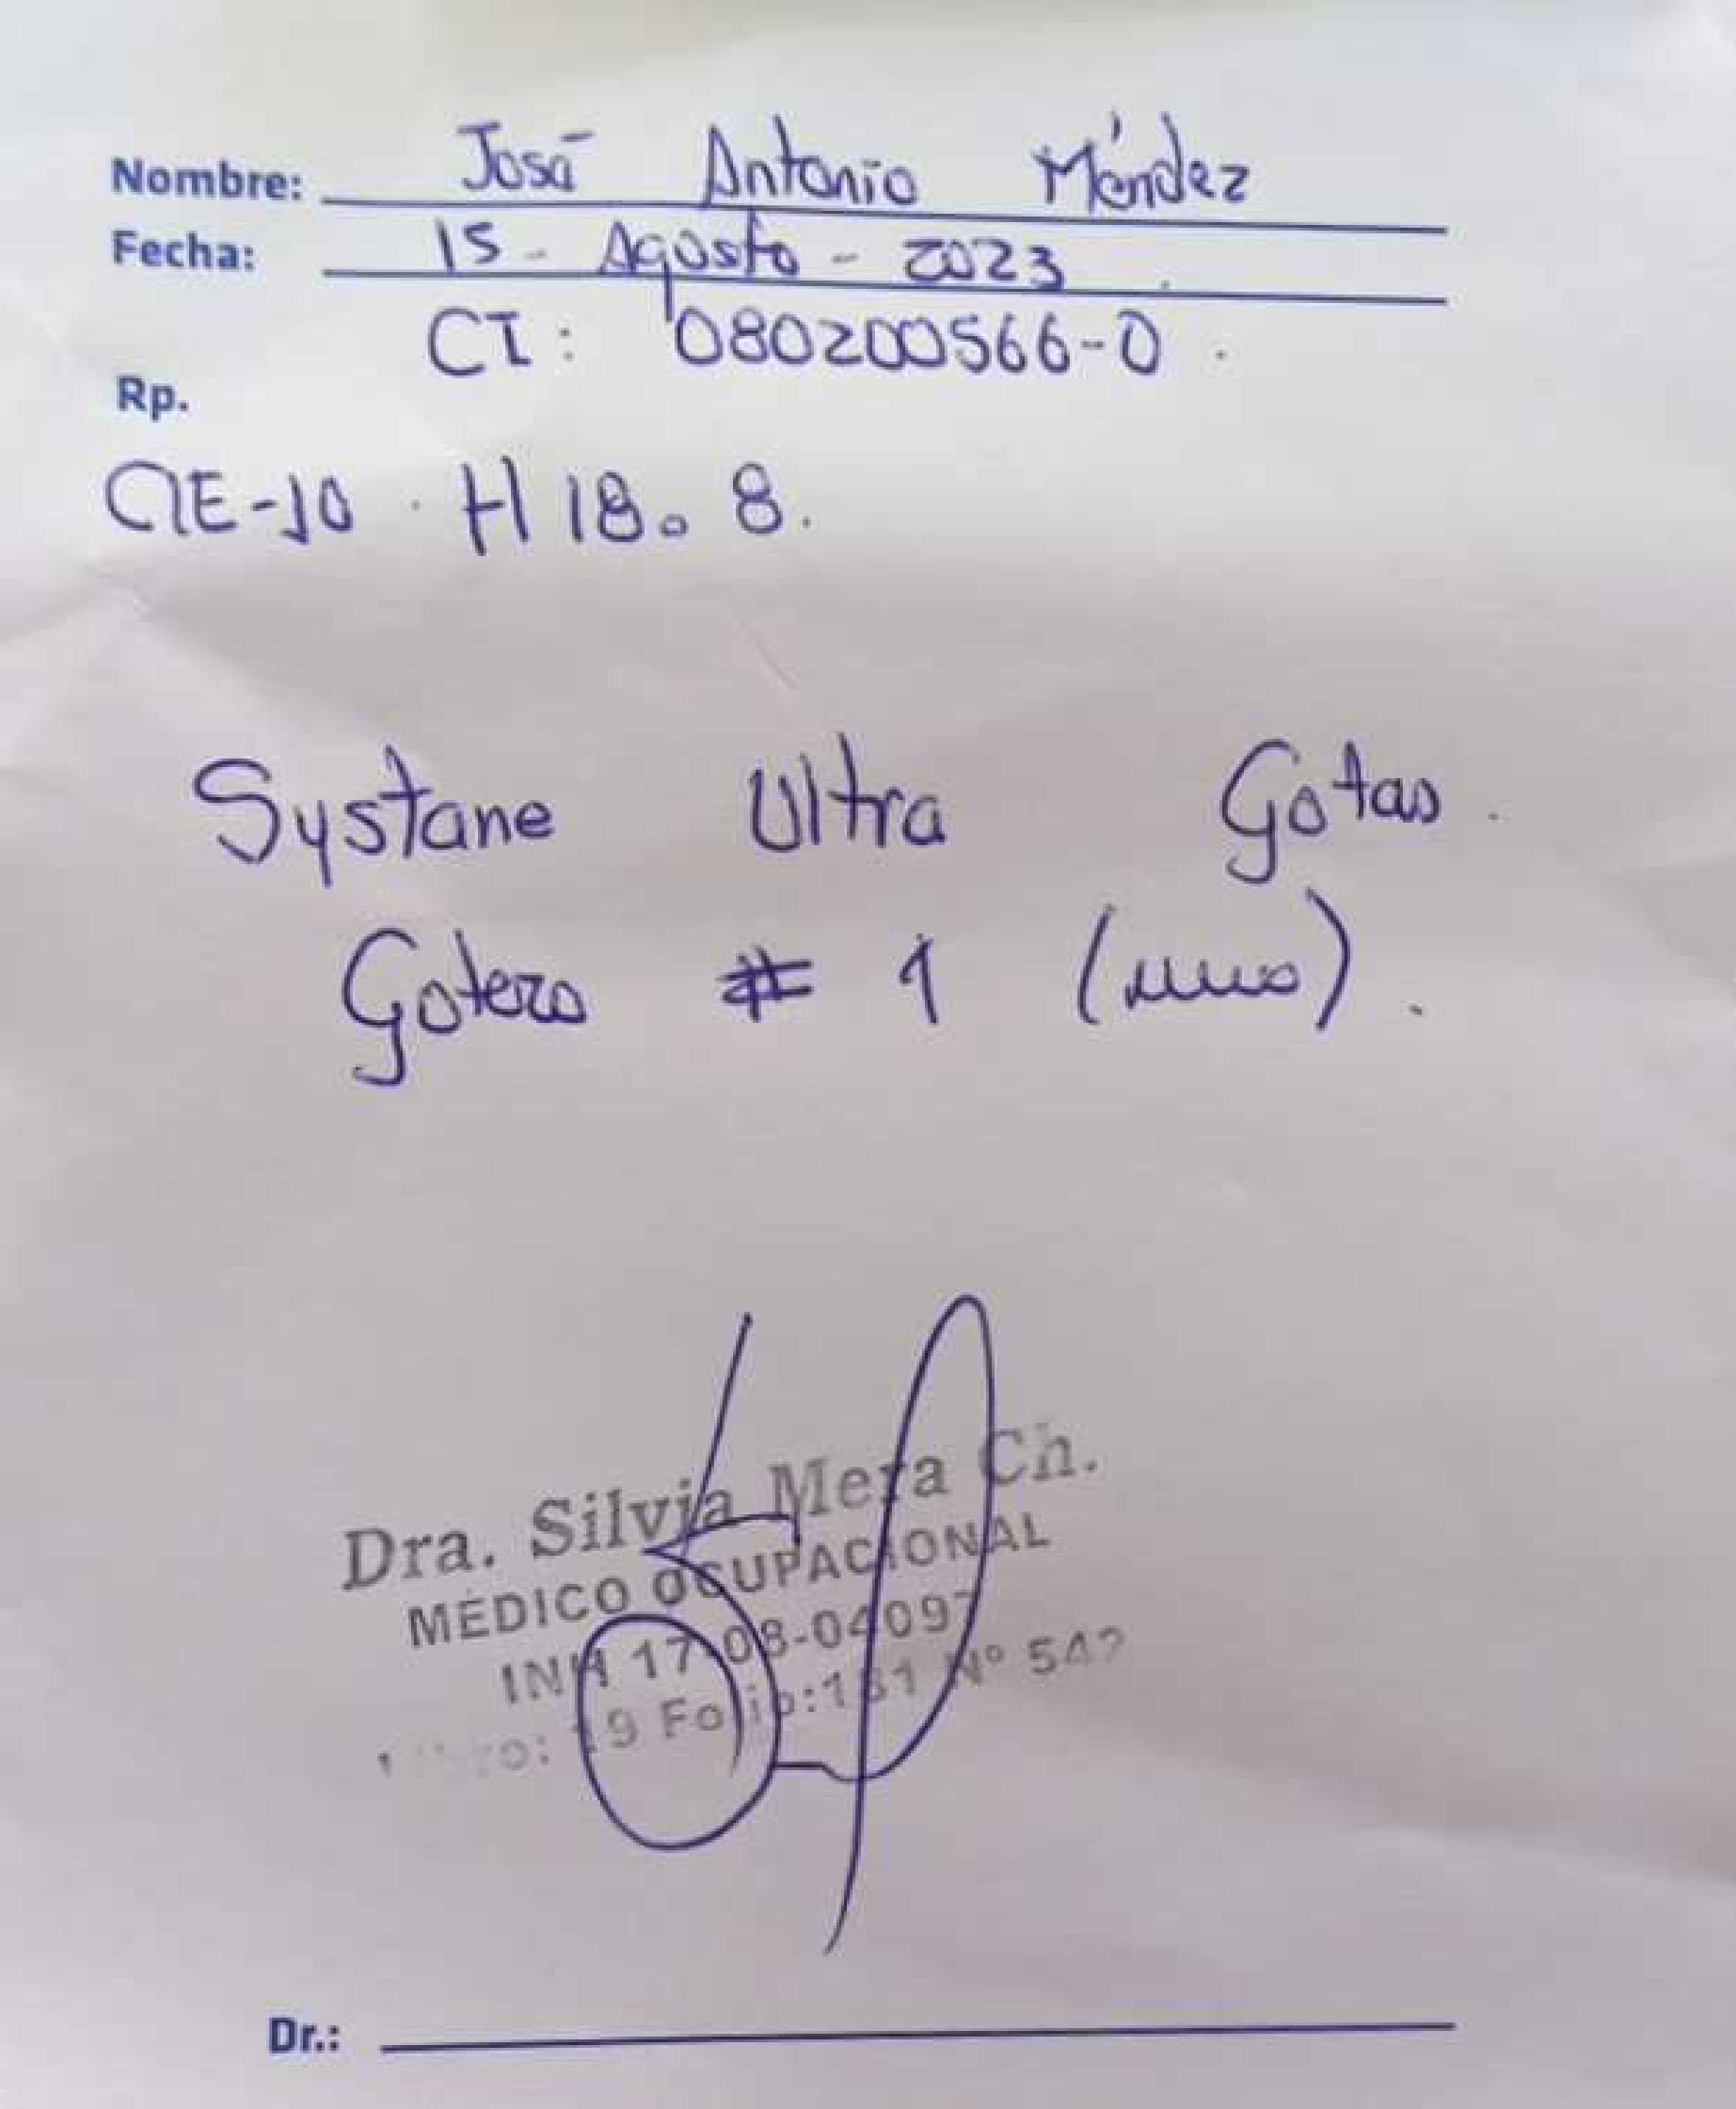 Nombre: José Antonio Méndez
Fecha: 15 - Agosto - 2023
CI: 080200566-0.
Rp.
CIE-10. H 18.8.
Systane Ultra Gotas.
Gotero # 1 (uno).
Dra. Silvia Mera Ch.
MÉDICO OCUPACIONAL
INH 17-08-04097
19 Folio:161 Nº 542
Dr.: